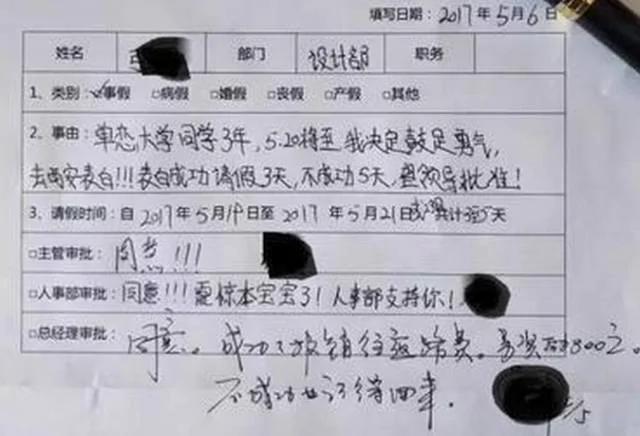 填写日期：2017年5月6日
姓名 部门 设计部 职务
1、类别：☑事假 □病假 □婚假 □丧假 □产假 □其他
2、事由：单恋大学同学3年，5.20将至我决定鼓足勇气，
去西安表白!!!表白成功请假3天，不成功5天，望领导批准！
3、请假时间：自2017年5月19日至2017年5月21日 共计3至5天
□主管审批：同意!!!
□人事部审批：同意!!!震惊本宝宝了！人事部支持你！
□总经理审批：同意。成功了报销往返路费。另奖800元。
不成功也记得回来。